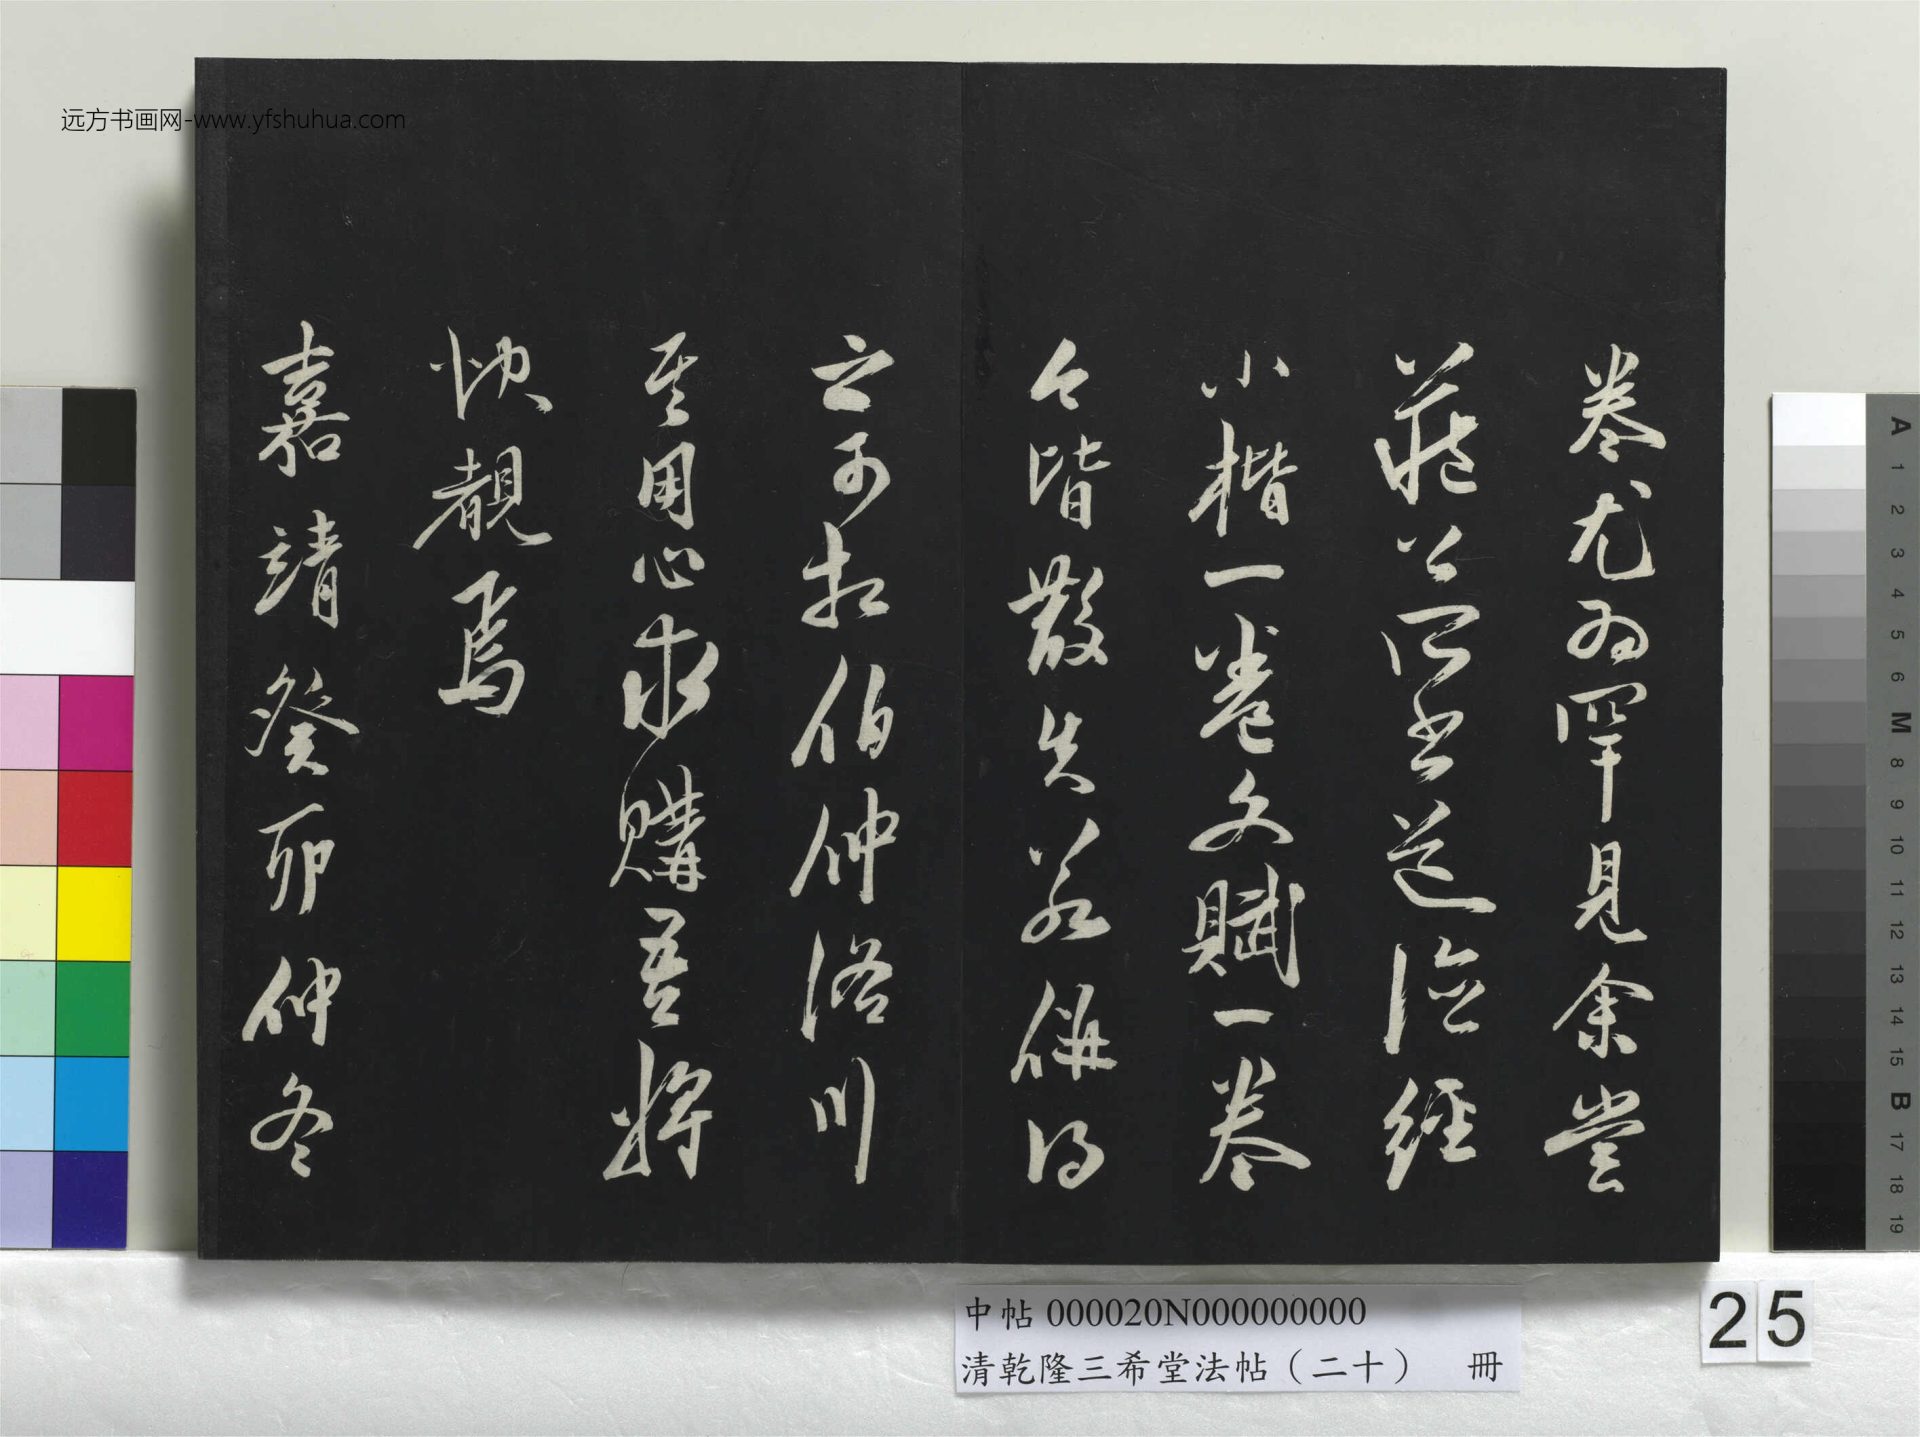 远方书画网-www.yfshuhua.com
卷尤為罕見余嘗
藏公所書道德經
小楷一卷文賦一卷
今皆散失若併得
之可相伯仲洛川
其用心求購吾將
快覩焉
嘉靖癸卯仲冬
A 1 2 3 4 5 6 M 8 9 10 11 12 13 14 15 B 17 18 19
中帖 000020N000000000
清乾隆三希堂法帖（二十） 冊
25